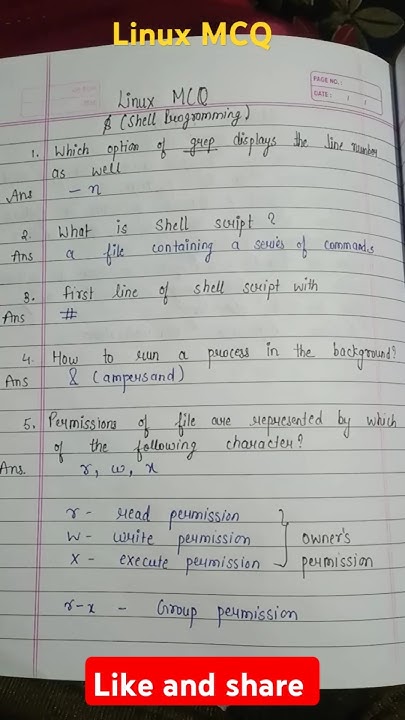 Linux MCQ
PAGE NO.:
DATE: / /
Linux MCQ
$ (Shell Programming)
1. Which option of grep displays the line number
as well
Ans - n
2. What is shell script ?
Ans a file containing a series of commands
3. first line of shell script with
Ans #
4. How to run a process in the background?
Ans & (ampersand)
5. Permissions of file are represented by which
of the following character?
Ans. r, w, x
r - read permission
w - write permission
x - execute permission
owner's
permission
r-x - Group permission
Like and share